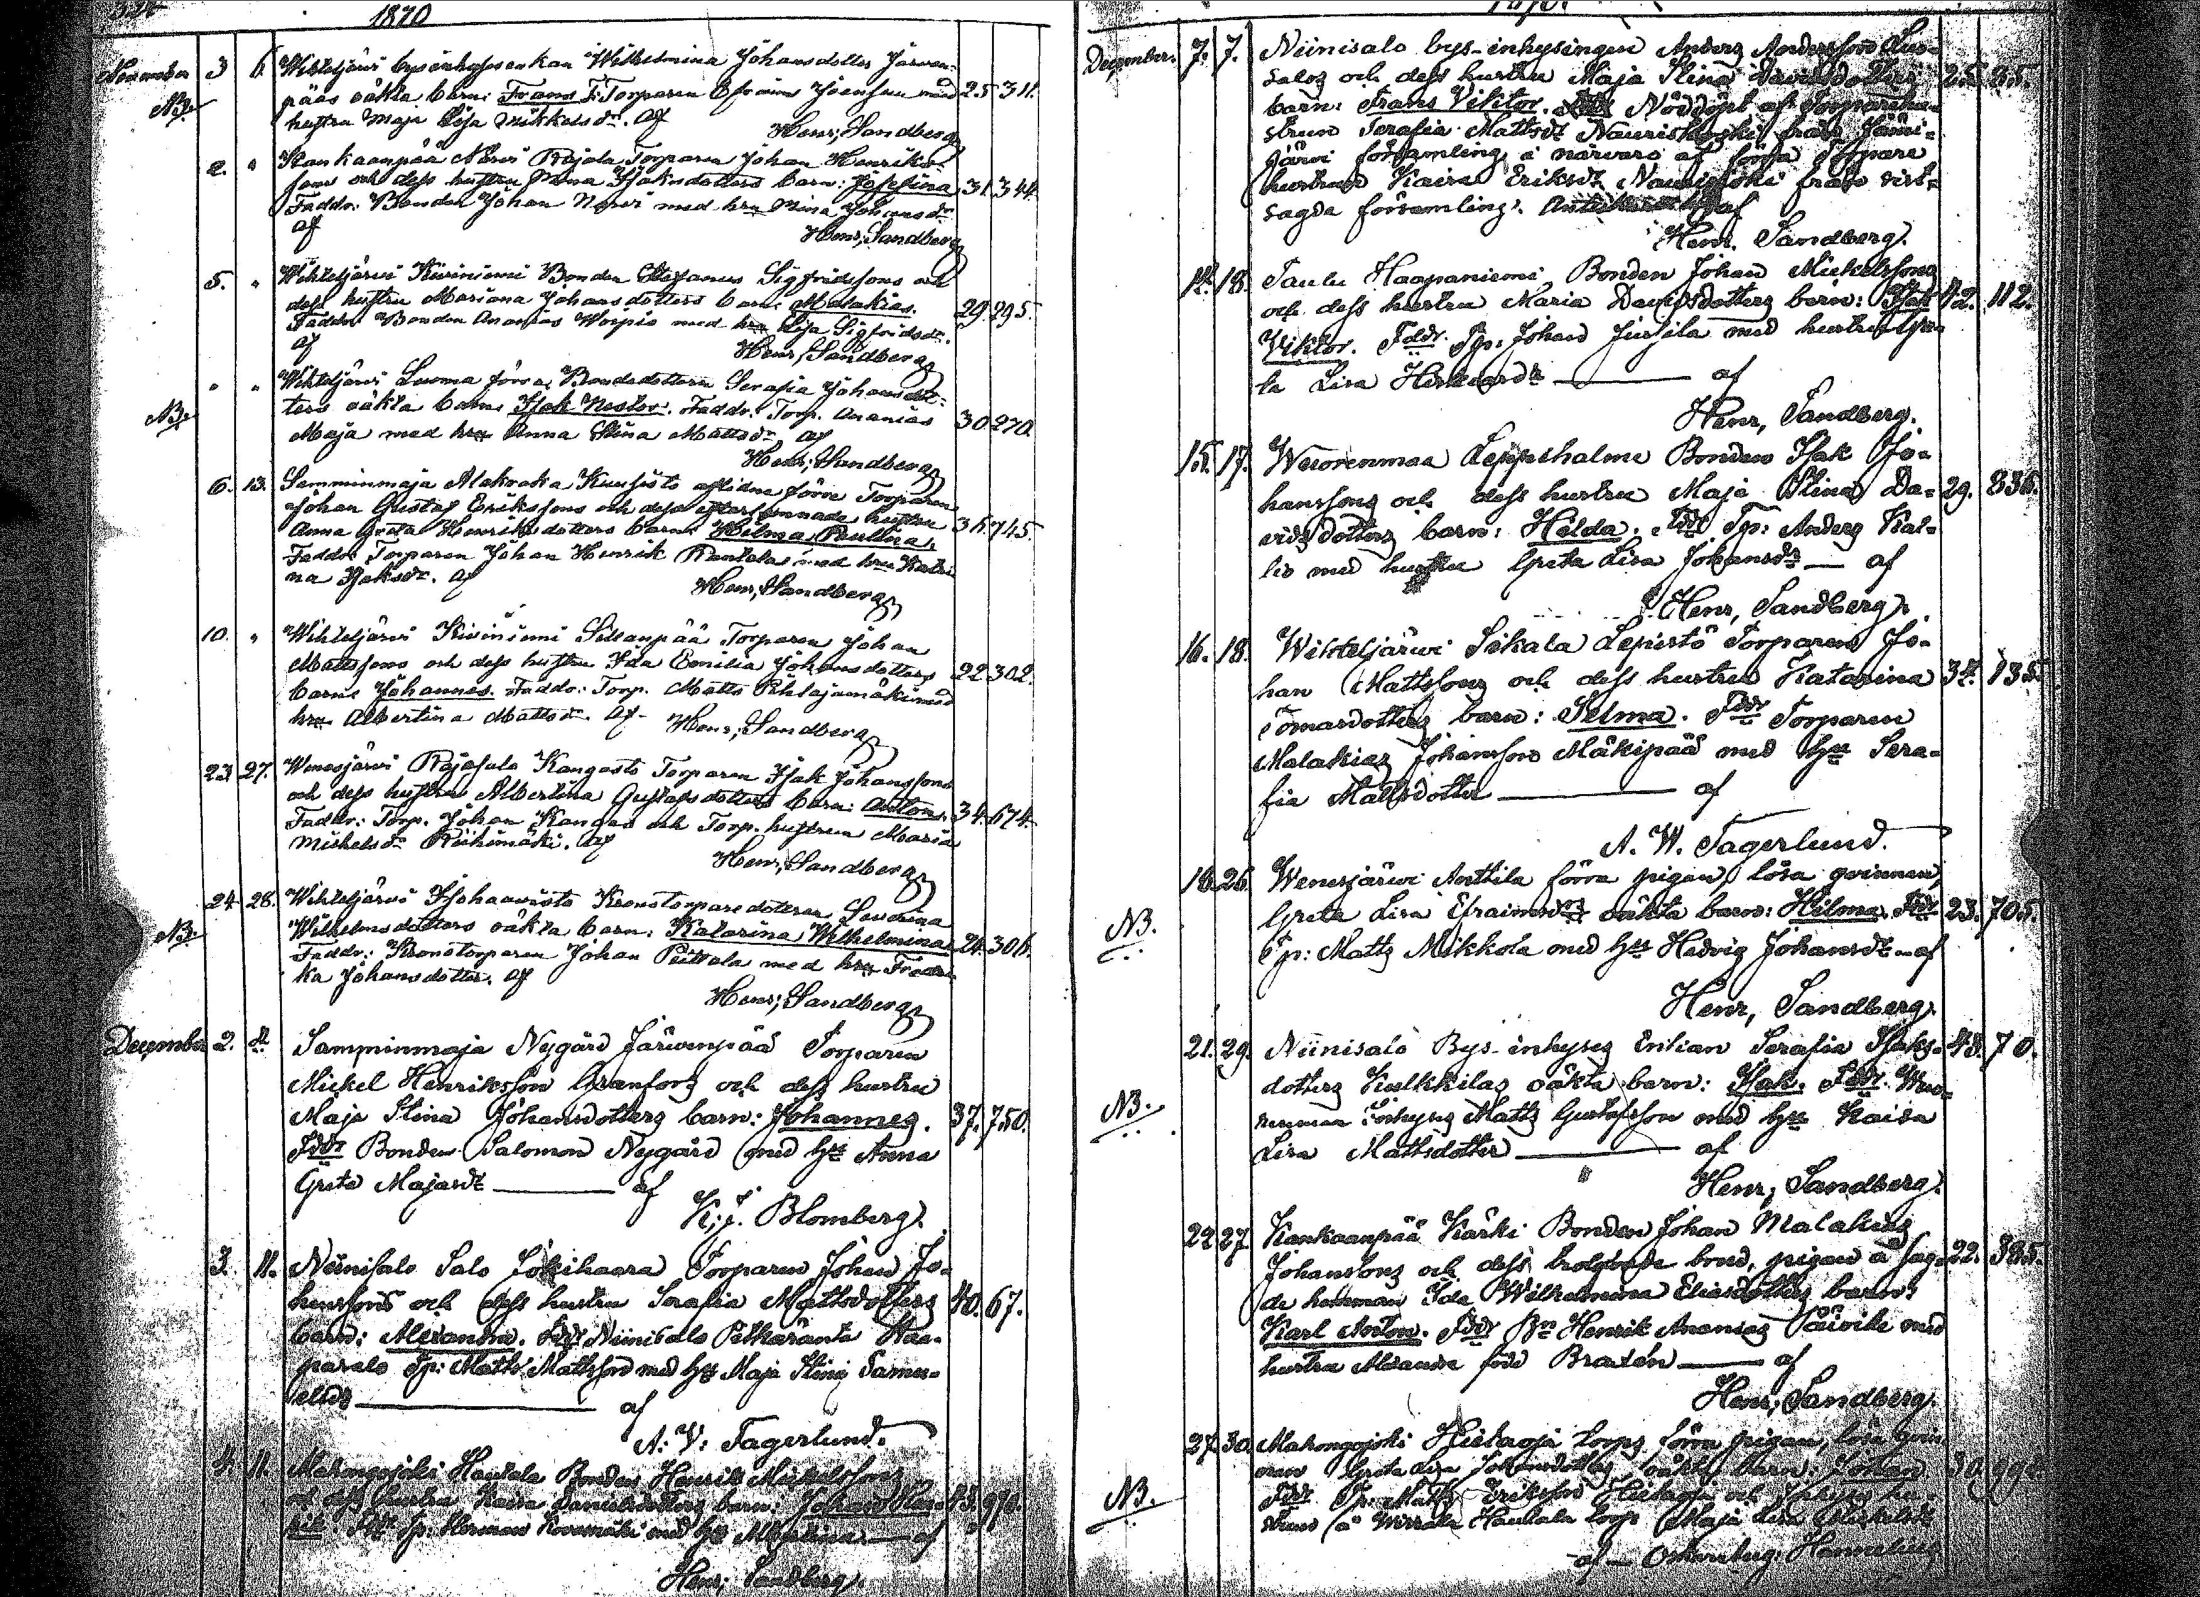 1870
November 3 6. Wihteljärvi bys inhysenkan Wilhelmina Johansdotter Järven-
pääs oäkta barn: Frans. F: Torparen Efraim Joensuu med 25 311.
NB. hustru Maja Lisa Mikkelsdr. af
Henr; Sandberg
2. " Kankaanpää Narvi Rajala Torparen Johan Henriks-
sons och dess hustru Isaksdotters barn: Josefina 31. 344.
Faddr: Bonden Johan Narvi med hru Johansdr
af Henr; Sandberg
5. " Wihteljärvi Kiviniemi Bonden Stefanus Sigfridssons och
dess hustru Mariana Johansdotters barn: Malakias. 29 295.
Faddr Bonden Ananias Woipio med hru Lisa Sigfridsdr.
af Henr; Sandberg
" " Wihteljärvi Luoma förra Bondedottern Serafia Johansdot-
NB. ters oäkta barn: Isak Nestor. Faddr: Torp. Ananias 30 270.
Maja med hru Anna Stina Mattsdr af
Henr; Sandberg
6. 13. Samminmaja Alakoska Kuusisto aflidne förre Torparen
Johan Gustaf Erikssons och dess efterlemnade hustru
Anna Greta Henriksdotters barn: Hilma Paulina. 36 745.
Faddr: Torparen Johan Henrik Rantala med hru Katri-
na Isaksdr. af Henr; Sandberg
10. " Wihteljärvi Kiviniemi Sillanpää Torparen Johan
Mattssons och dess hustru Ida Emilia Johansdotters 22 302.
barn: Johannes. Faddr: Torp. Matts Pihlajamäki med
hru Albertina Mattsdr. af - Henr; Sandberg
23 27. Wenesjärvi Rajasalo Kangasto Torparen Isak Johanssons
och dess hustru Albertina Gustafsdotters barn: Anton. 34. 674.
Faddr: Torp. Johan Kangas och Torp. hustrun Maria
Mickelsdr Riihimäki. af
Henr; Sandberg
24 28. Wihteljärvi Kronotorparedottern Lovisa
NB. Wilhelmsdotters oäkta barn: Katarina Wilhelmina 24. 306.
Faddr: Kronotorparen Johan Peittala med hru Fredri-
ka Johansdotter. af
Henr; Sandberg
December 2. Samminmaja Nygård Järvenpää Torparen
Mickel Henriksson Granfors och dess hustru
Maja Stina Johansdotters barn: Johannes. 37. 750.
Fddr Bonden Salomon Nygård med hru Anna
Greta Majasdr af
K. J. Blomberg.
3. 11. Niinisalo Salo Jokihaara Torparen Johan Jo-
hanssons och dess hustru Serafia Mattsdotters 40. 67.
barn: Alexandra. Fddr Niinisalo Pitkäranta Haa-
parala Tp: Matts Mattsson med hru Maja Stina Samu-
elsdr af
A. V. Fagerlund.
4. 11. Mahongojoki Hautala Bonden Henrik Mickelssons
och dess hustru Kaisa Danielsdotters barn: Johan Hen- 43. 976.
rik. Fddr Tp: Herman Kovamäki med hru Albertina af
Henr; Sandberg.
1870.
December. 7. 7. Niinisalo bys-inhysingen Anders Andersson Luo-
salos och dess hustru Maja Stina Davidsdotters 25. 85.
barn: Frans Viktor. Nöddöpt af Torparehu-
strun Serafia Mattsdr Naurishoski från Jämi-
järvi församling i närvaro af förra Torpare
hustrun Kaisa Eriksdr från sist-
sagda församling. af
Henr. Sandberg.
14. 18. Taulu Haapaniemi Bonden Johan Mickelssons
och dess hustru Maria Davidsdotters barn: Isak 42. 112.
Viktor. Fddr. Tp: Johan Jussila med hustru Gre-
ta Lisa af
Henr, Sandberg.
15. 17. Wuorenmaa Leppihalme Bonden Isak Jo-
hanssons och dess hustru Maja Stina Da- 29. 836.
vidsdotters barn: Hilda. Fddr Tp: Anders Kal-
lio med hustru Greta Lisa Johansdr af
Henr, Sandberg.
16. 18. Wihteljärvi Sikala Lepistö Torparen Jo-
han Mattssons och dess hustru Katarina 34. 135.
Tomasdotters barn: Selma. Fddr Torparen
Malakias Johansson Mäkipää med hru Sera-
fia Mattsdotter af
A. W. Fagerlund.
18. 26. Wenesjärvi Anttila förra pigan, lösa qvinnan,
NB. Greta Lisa Efraimsdrs oäkta barn: Hilma. Fddr 23. 705.
Tp: Matts Mikkola med hru Hedvig Johansdr af
Henr, Sandberg.
21. 29. Niinisalo Bys-inhyses Enkan Serafia Isaks- 43. 70.
NB. dotters Kulkkilas oäkta barn: Isak. Fddr. Wuo-
renmaa Inhyses Matts Gustafsson med hru Kaisa
Lisa Mattsdotter af
Henr; Sandberg.
22 27. Kankaanpää Karki Bonden Johan Malakias
Johanssons och dess bond, pigan å sag- 22. 385.
de hemman Ida Wilhelmina Eliasdotters barn:
Karl Anton. Fddr Bn Henrik Ananias Päivike med
hustru Alexandra född Braxén af
Henr; Sandberg.
27. 30. Mahongojoki Hietaoja torps förra pigan, lösa qvin-
nan Greta Lisa Johansdotters oäkta barn: Johan 30.
NB. Fddr Tp: Matts Eriksson Hietaoja och
å Wirrala Hautala torp Maja Lisa Mickelsdr
af